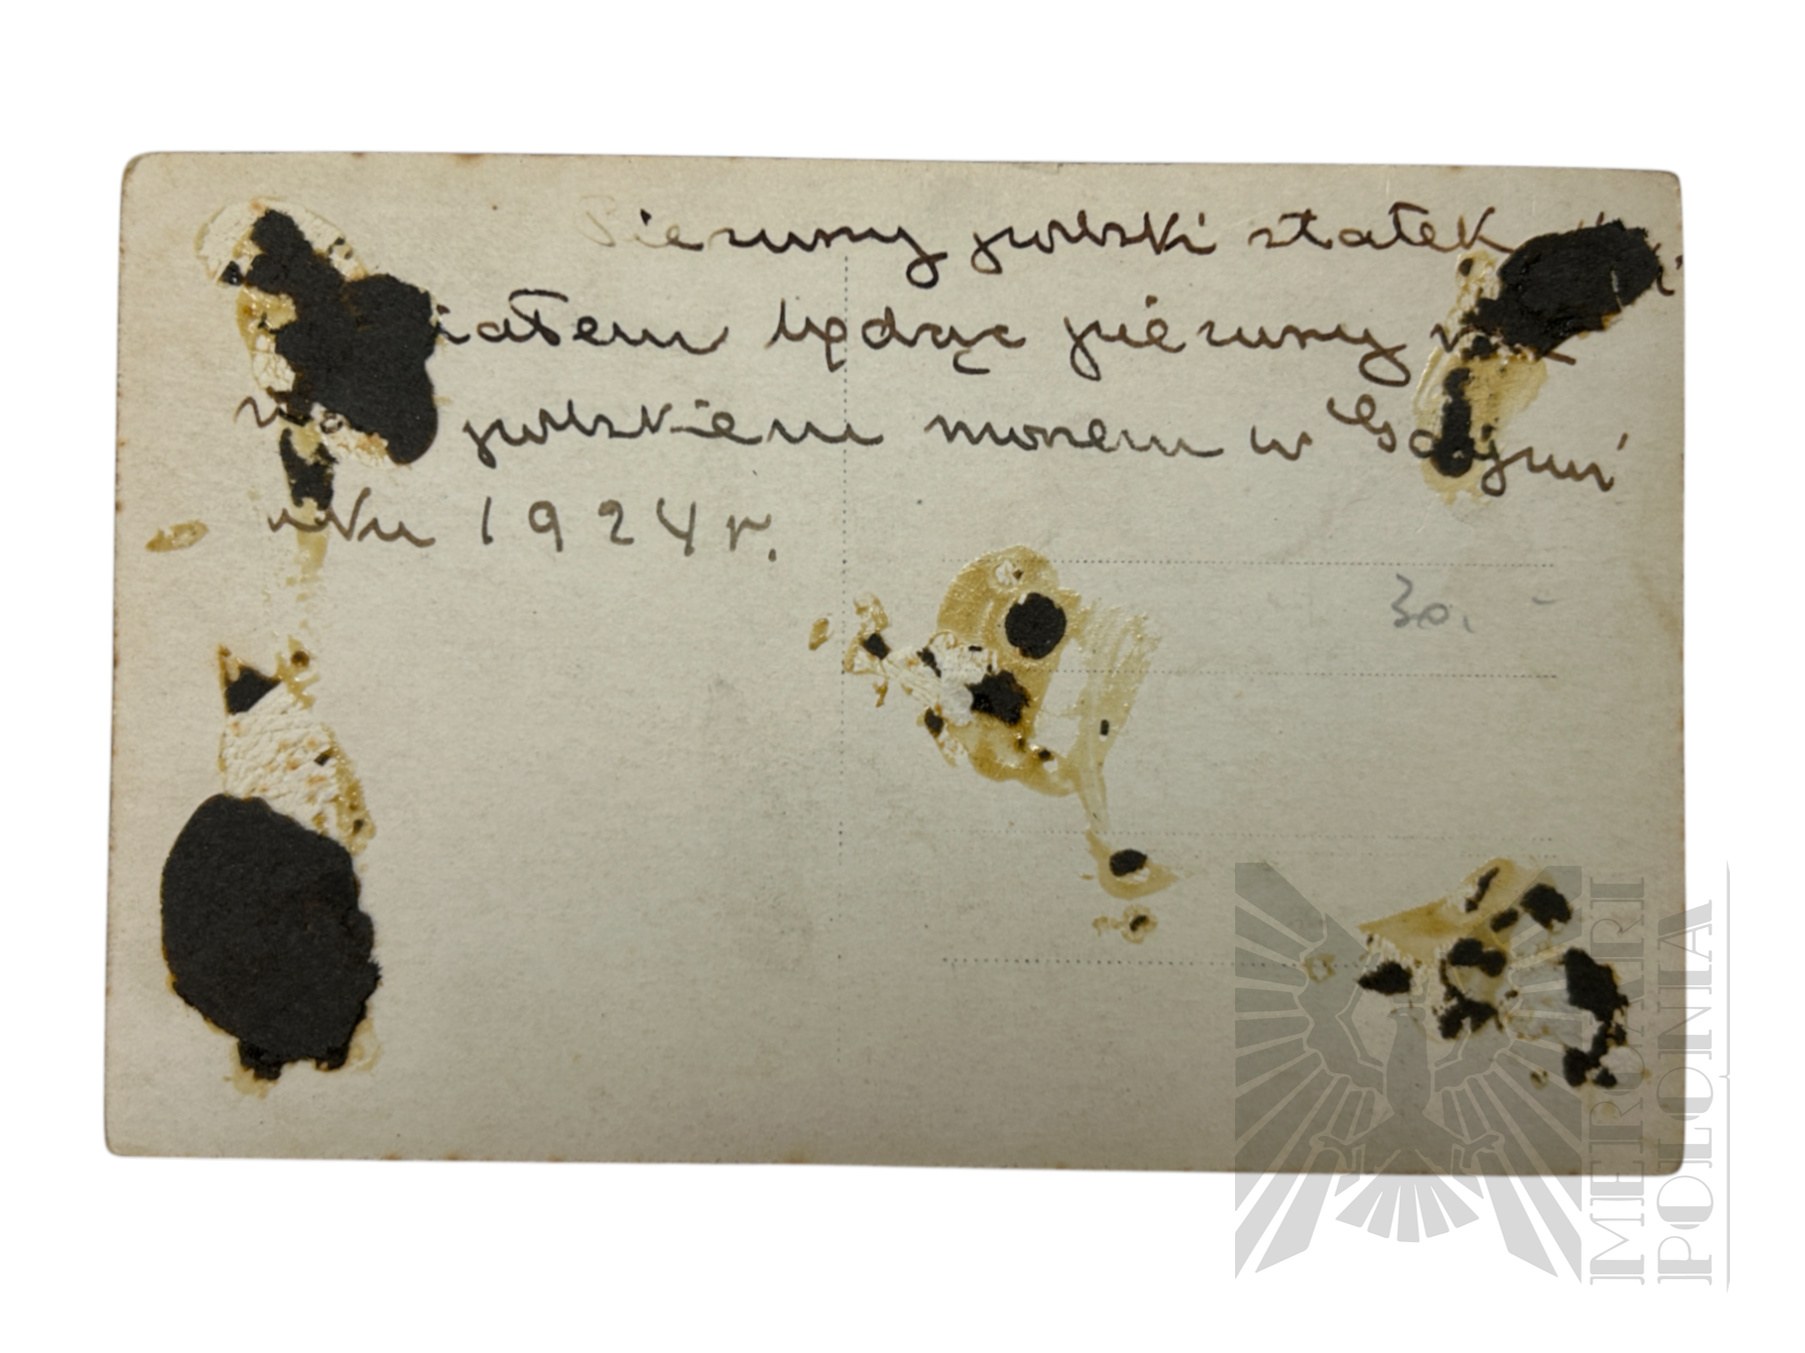 Pierwszy polski statek
iałem będąc pierwszy raz
nad polskiem morzem w Gdyni
roku 1924 r.
30.-
MEROARI
POLONIA